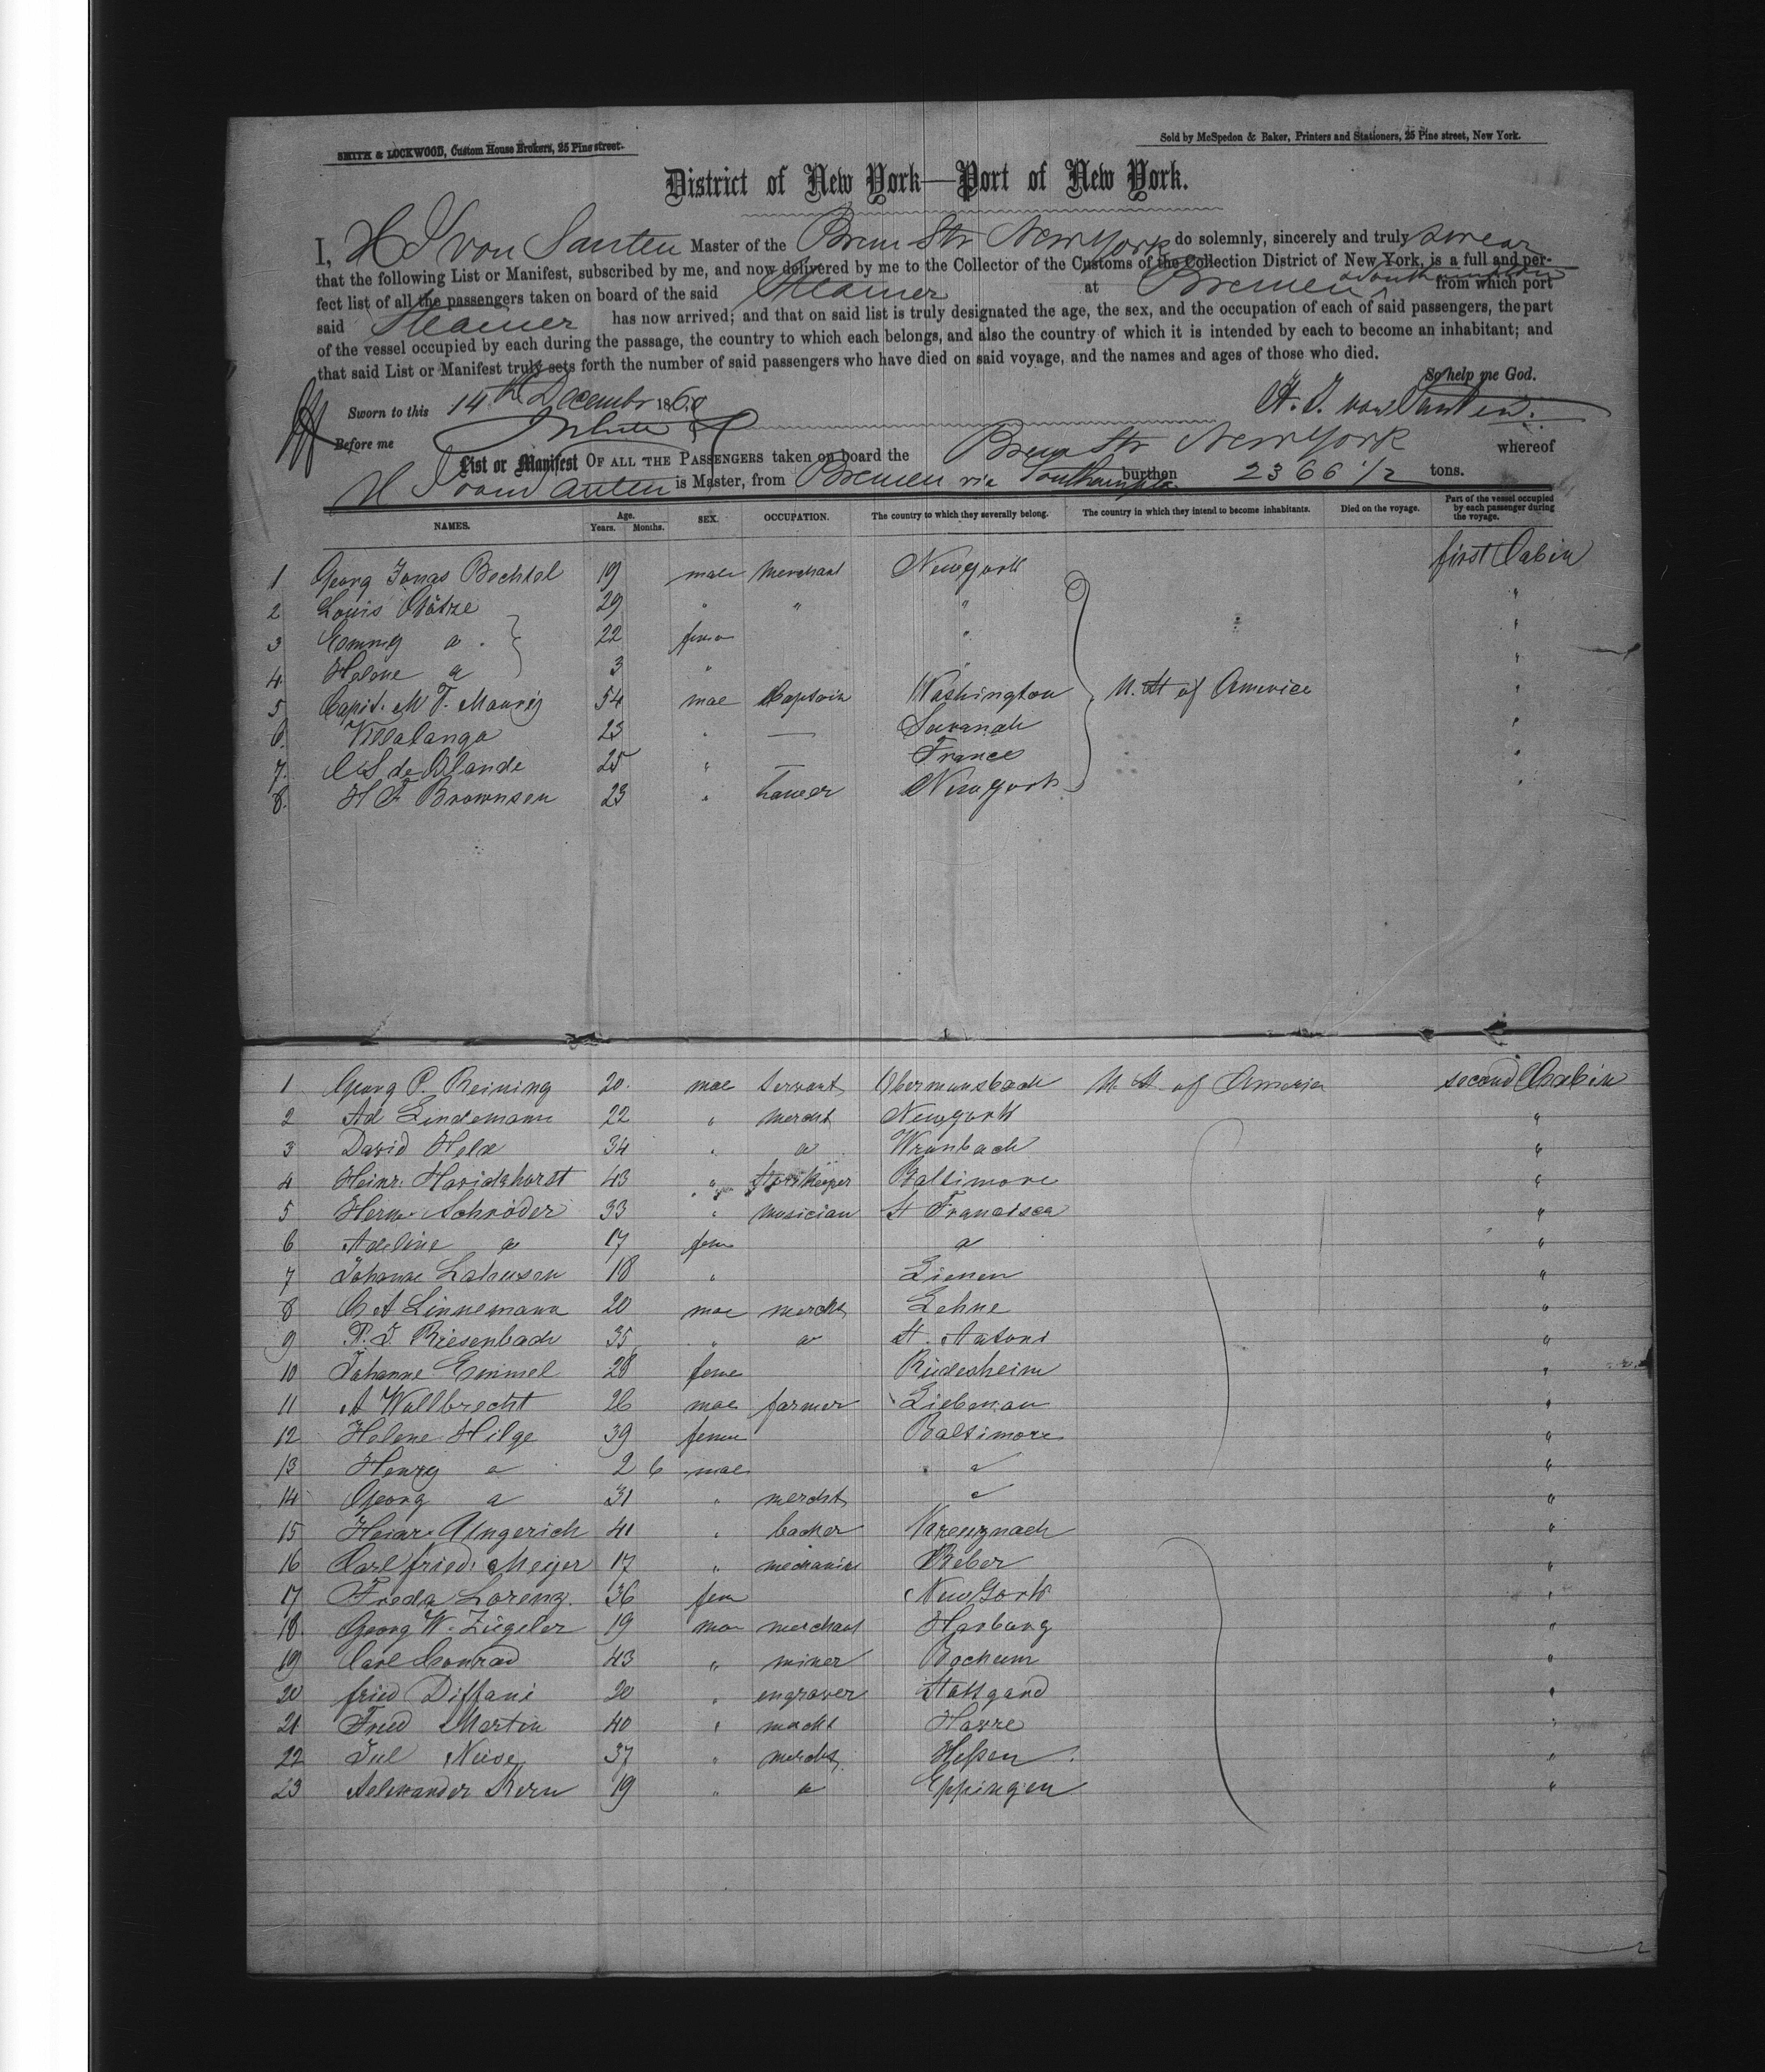 SMITH & LOCKWOOD, Custom House Brokers, 25 Pine street.
Sold by McSpedon & Baker, Printers and Stationers, 25 Pine street, New York.
District of New York—Port of New York.
I, H J von Santen Master of the Brem Str New York do solemnly, sincerely and truly swear
that the following List or Manifest, subscribed by me, and now delivered by me to the Collector of the Customs of the Collection District of New York, is a full and per-
fect list of all the passengers taken on board of the said Steamer at Bremen & Southampton from which port
said Steamer has now arrived; and that on said list is truly designated the age, the sex, and the occupation of each of said passengers, the part
of the vessel occupied by each during the passage, the country to which each belongs, and also the country of which it is intended by each to become an inhabitant; and
that said List or Manifest truly sets forth the number of said passengers who have died on said voyage, and the names and ages of those who died.
So help me God.
Sworn to this 14th December 1860 H. J. von Santen.
Before me White
List or Manifest OF ALL THE PASSENGERS taken on board the Brem Str New York whereof
H J von Santen is Master, from Bremen via Southampton burthen 2366 1/2 tons.
NAMES. Age. Years. Months. SEX. OCCUPATION. The country to which they severally belong. The country in which they intend to become inhabitants. Died on the voyage. Part of the vessel occupied by each passenger during the voyage.
1 Georg Jonas Bechtel 19 male Merchant Newyork first Cabin
2 Louis Götze 29 " " " "
3 Emmy a 22 fem " "
4 Helene a 3 " " "
5 Capit. M F. Maury 54 mae Captain Washington U. St of America "
6. Villalanga 23 " — Savanah "
7. C S de Blande 25 " — France "
8. H F Brownsen 23 " Newyork "
1 Georg P. Reining 20. mae Servant Obermansbach U. St of America second Cabin
2 Ad Lindemann 22 " mercht Newyork "
3 David Hela 34 " a "
4 Heinr. 43 " Baltimore "
5 Herm. Schröder 33 " musician St Francisca "
6 Adeline a 17 fem a "
7 Johanne Lahusen 18 " Lienen "
8 C A Linnemann 20 mae mercht Lehne "
9 P. J Riesenbach 35 " a St. Antoni "
10 Johanne Emmel 28 feme Rüdesheim "
11 A Wallbrecht 26 mae farmer Liebenau "
12 Helene Hilge 39 feme Baltimore "
13 Henry a 2 6 mae a "
14 Georg a 31 " mercht a "
15 Heinr. Ungerich 41 " backer Kreuznach "
16 Carl fried. Meyer 17 " mechanic Beber "
17 Freda Lorenz. 36 fem New York "
18. Georg W. Ziegeler 19 mae merchant Harburg "
19 Carl Conrad 43 " miner Bochum "
20 fried Diffani 20 " engraver Stottgard "
21 Fried Martin 40 " mercht Havre "
22 Jul Neise 37 " mercht Heſsen "
23 Aelexander Kern 19 " a Eppingen "